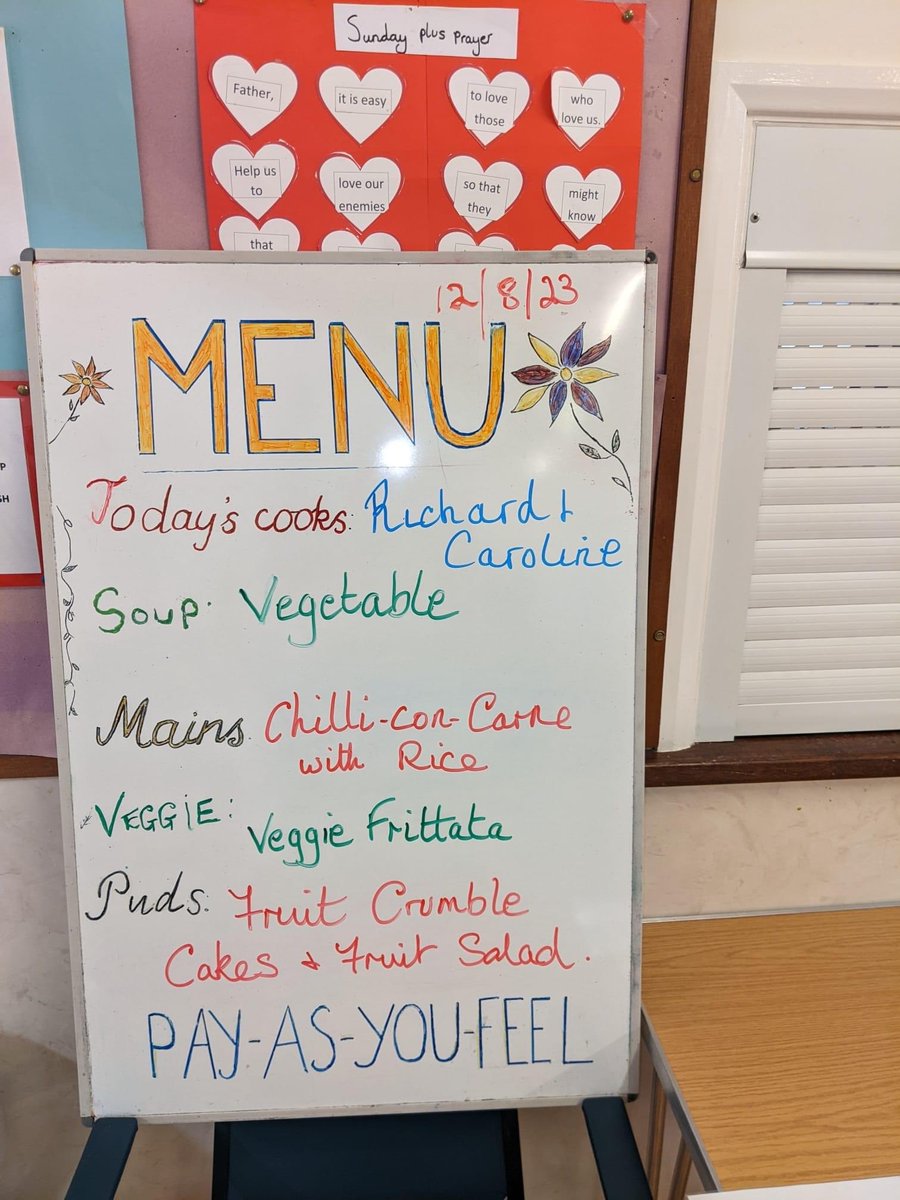 Sunday plus prayer
Father,
it is easy
to love
those
who
love us.
Help us
to
love our
enemies
so that
they
might
know
that
12/8/23
MENU
Today's cooks: Richard &
Caroline
Soup: Vegetable
Mains: Chilli-con-Carne
with Rice
VEGGIE: Veggie Frittata
Puds: Fruit Crumble
Cakes & Fruit Salad.
PAY-AS-YOU-FEEL